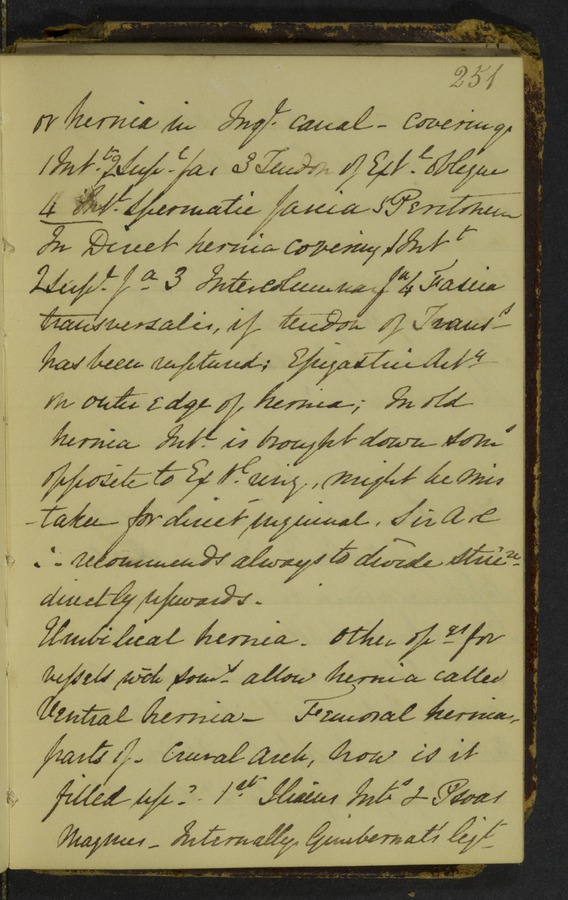 251
or hernia in Ingl. canal - coverings
1 Intt. 2 Supl. fas 3 Tendon of Extl. oblique
4 Intl. spermatic fascia 5 Peritoneum
In Direct hernia coverings 1 Intt
2 Supl. fa 3 Intercolumnar fa 4 Fascia
transversalis, if tendon of Transs
has been ruptured; Epigastric Arty
on outer edge of hernia; In old
hernia Intl. is brought down somt
opposite to Extl. ring, might be mis
-taken for direct inguinal. Sir A C
∴ recommends always to divide stricre.
directly upwards.
Umbilical hernia. Other opgs for
vessels wch somt. allow hernia called
Ventral hernia - Femoral hernia,
parts of. Crural Arch, how is it
filled up? 1st Iliacus Ints 2 Psoas
Magnus - Internally Gimbernat's ligt.